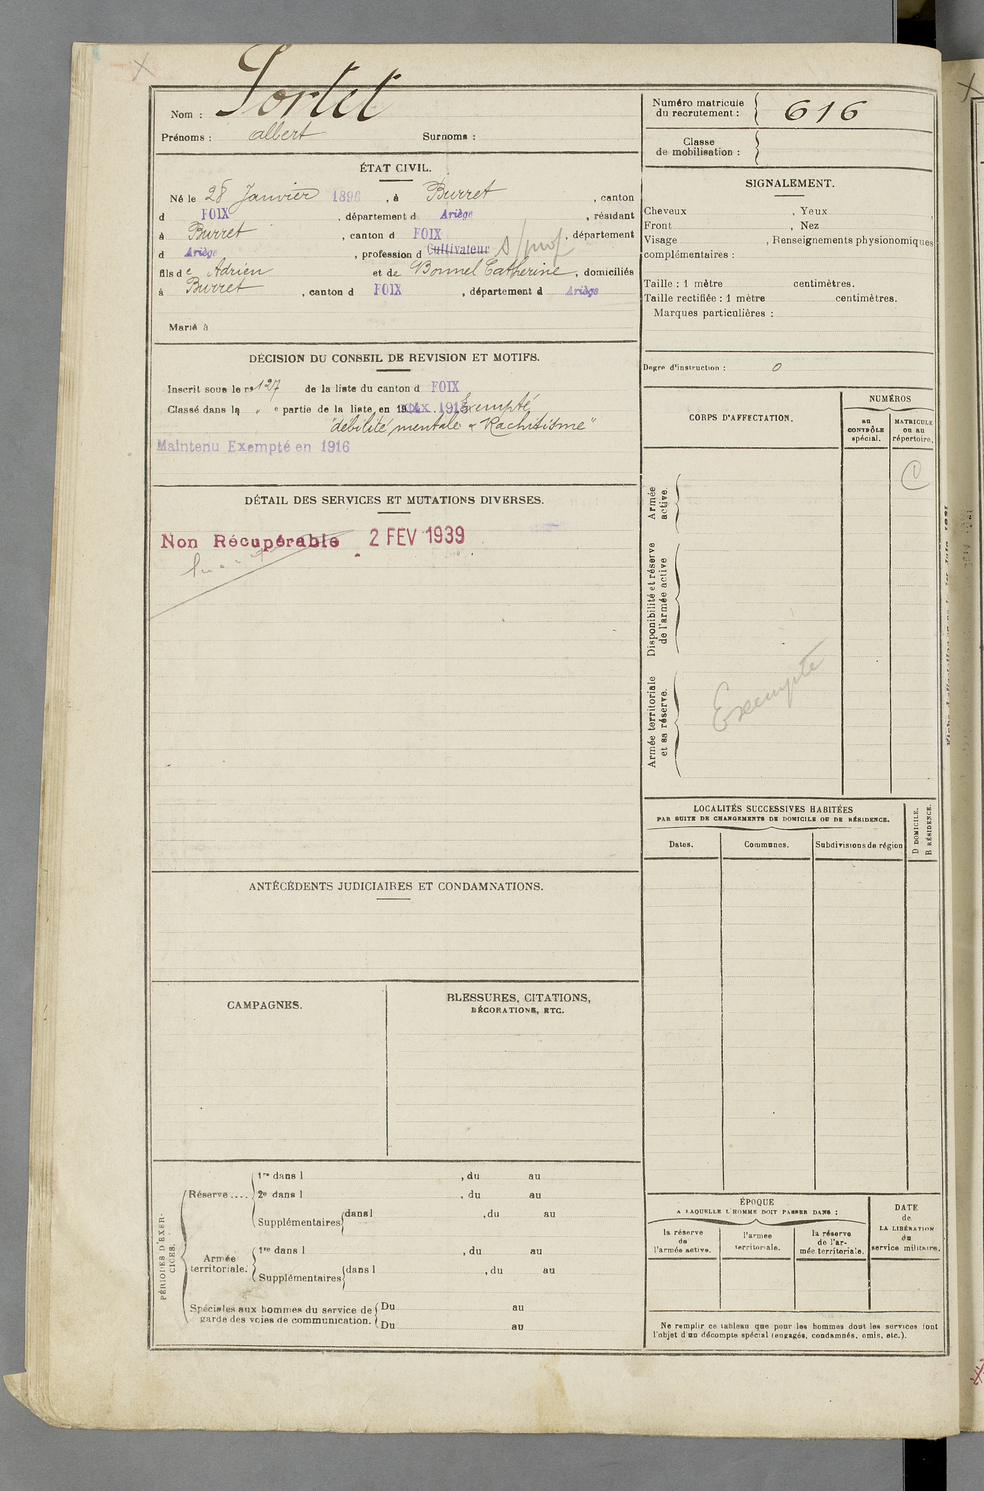 Nom : Sortet
Prénoms : albert Surnoms :
Numéro matricule du recrutement : 616
Classe de mobilisation :
ÉTAT CIVIL.
Né le 28 Janvier 1896, à Burret, canton
d FOIX, département d Ariège, résidant
à Burret, canton d FOIX, département
d Ariège, profession d Cultivateur s/prof
fils de Adrien et de Bonnel Catherine, domiciliés
à Burret, canton d FOIX, département d Ariège
Marié à
SIGNALEMENT.
Cheveux , Yeux ,
Front , Nez
Visage , Renseignements physionomiques
complémentaires :
Taille : 1 mètre centimètres.
Taille rectifiée : 1 mètre centimètres.
Marques particulières :
Degré d'instruction : 0
DÉCISION DU CONSEIL DE REVISION ET MOTIFS.
Inscrit sous le no 127 de la liste du canton d FOIX
Classé dans la " e partie de la liste en 1915 Exempté
"débilité mentale & Rachitisme"
Maintenu Exempté en 1916
DÉTAIL DES SERVICES ET MUTATIONS DIVERSES.
Non Récupérable 2 FEV 1939
CORPS D'AFFECTATION.
NUMÉROS
au CONTRÔLE spécial.
MATRICULE ou au répertoire.
Armée active.
Disponibilité et réserve de l'armée active
Armée territoriale et sa réserve.
Exempté
LOCALITÉS SUCCESSIVES HABITÉES
PAR SUITE DE CHANGEMENTS DE DOMICILE OU DE RÉSIDENCE.
Dates. Communes. Subdivisions de région
D DOMICILE.
R RÉSIDENCE.
ANTÉCÉDENTS JUDICIAIRES ET CONDAMNATIONS.
CAMPAGNES.
BLESSURES, CITATIONS,
DÉCORATIONS, ETC.
PÉRIODES D'EXERCICES.
Réserve....
1re dans l , du au
2e dans l , du au
Supplémentaires dans l , du au
Armée territoriale.
1re dans l , du au
Supplémentaires dans l , du au
Spéciales aux hommes du service de
garde des voies de communication.
Du au
Du au
ÉPOQUE
A LAQUELLE L'HOMME DOIT PASSER DANS :
la réserve de l'armée active.
l'armée territoriale.
la réserve de l'armée territoriale.
DATE de LA LIBÉRATION du service militaire.
Ne remplir ce tableau que pour les hommes dont les services font
l'objet d'un décompte spécial (engagés, condamnés, omis, etc.).